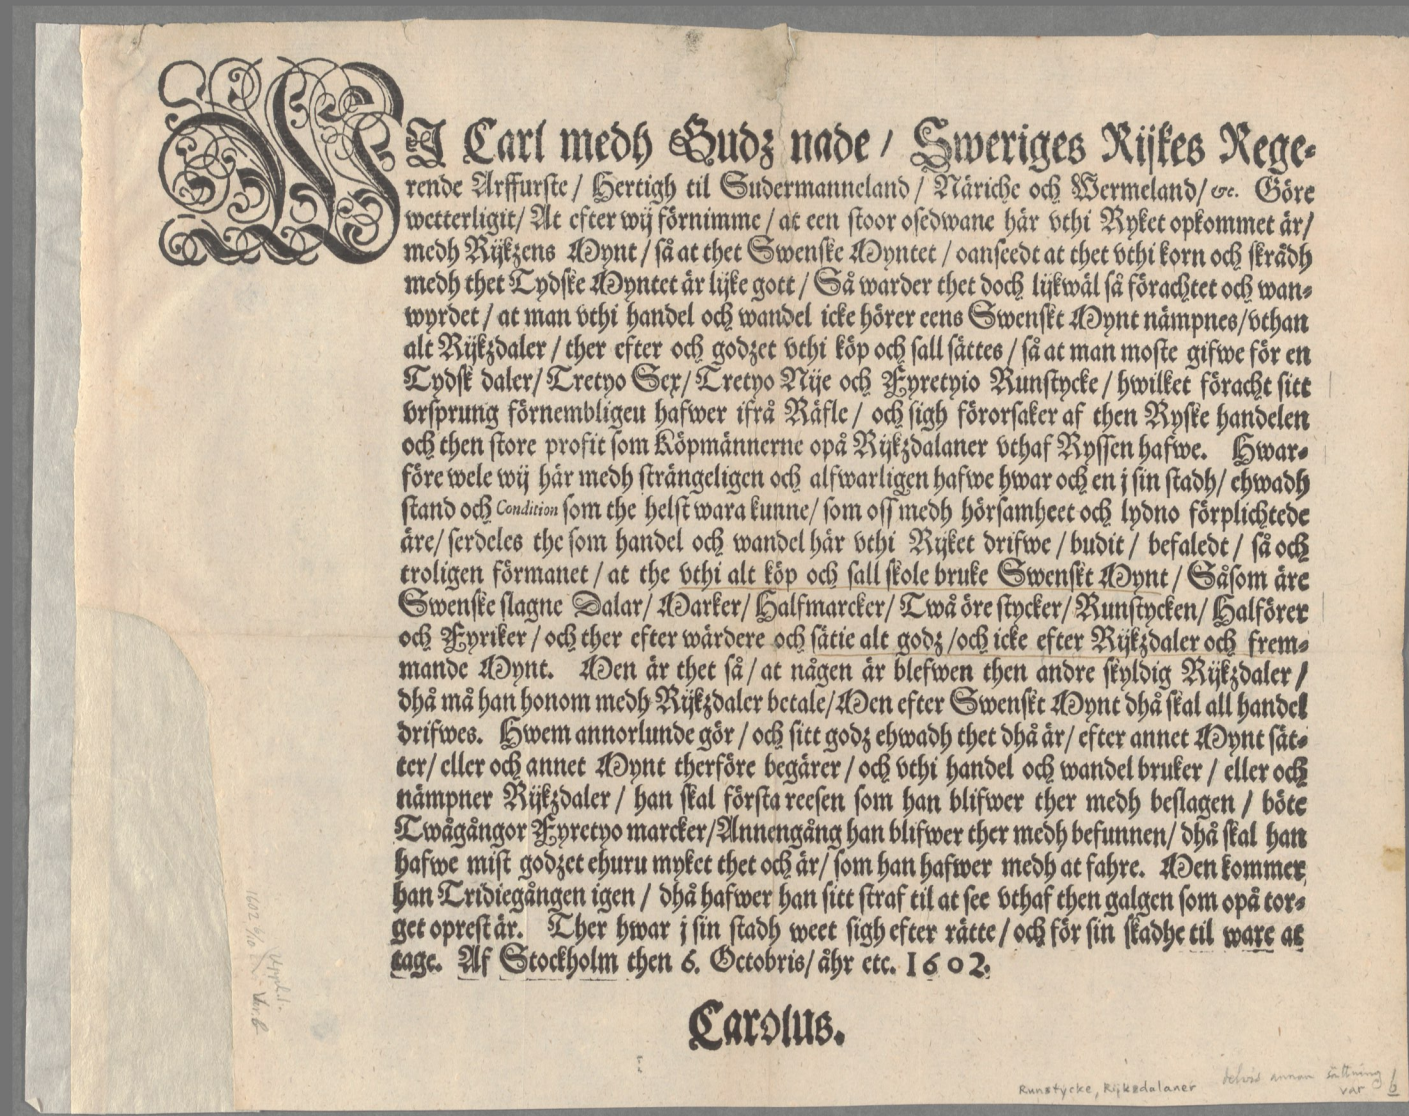 WJ Carl medh Gudz nade / Sweriges Rijkes Rege-
rende Arffurste / Hertigh til Sudermanneland / Näriche och Wermeland / &c. Göre
wetterligit / At efter wij förnimme / at een stoor osedwane här vthi Ryket opkommet är /
medh Rijkzens Mynt / så at thet Swenske Myntet / oanseedt at thet vthi korn och skrädh
medh thet Tydske Myntet är lijke gott / Så warder thet doch lijkwäl så förachtet och wan-
wyrdet / at man vthi handel och wandel icke hörer eens Swenskt Mynt nämpnes / vthan
alt Rijkzdaler / ther efter och godzet vthi köp och sall sättes / så at man moste gifwe för en
Tydsk daler / Tretyo Sex / Tretyo Nije och Fyretyio Runstycke / hwilket föracht sitt
vrsprung förnembligeu hafwer ifrå Räfle / och sigh förorsaker af then Ryske handelen
och then store profit som Köpmännerne opå Rijkzdalaner vthaf Ryssen hafwe. Hwar-
före wele wij här medh strängeligen och alfwarligen hafwe hwar och en j sin stadh / ehwadh
stand och Condition som the helst wara kunne / som oss medh hörsamheet och lydno förplichtede
äre / serdeles the som handel och wandel här vthi Rijket drifwe / budit / befaledt / så och
troligen förmanet / at the vthi alt köp och sall skole bruke Swenskt Mynt / Såsom äre
Swenske slagne Dalar / Marker / Halfmarcker / Twå öre stycker / Runstycken / Halförer
och Fyriker / och ther efter wärdere och sätie alt godz / och icke efter Rijkzdaler och frem-
mande Mynt. Men är thet så / at någen är blefwen then andre skyldig Rijkzdaler /
dhå må han honom medh Rijkzdaler betale / Men efter Swenskt Mynt dhå skal all handel
drifwes. Hwem annorlunde gör / och sitt godz ehwadh thet dhå är / efter annet Mynt sät-
ter / eller och annet Mynt therföre begärer / och vthi handel och wandel bruker / eller och
nämpner Rijkzdaler / han skal första reesen som han blifwer ther medh beslagen / böte
Twågångor Fyretyo marcker / Annengång han blifwer ther medh befunnen / dhå skal han
hafwe mist godzet ehuru myket thet och är / som han hafwer medh at fahre. Men kommer
han Tridiegången igen / dhå hafwer han sitt straf til at see vthaf then galgen som opå tor-
get oprest är. Ther hwar j sin stadh weet sigh efter rätte / och för sin skadhe til ware at
tage. Af Stockholm then 6. Octobris / åhr etc. 1602.
Carolus.
1602 6/10
Var. b
Runstycke, Rijkzdalaner
delvis annan sättning
var b